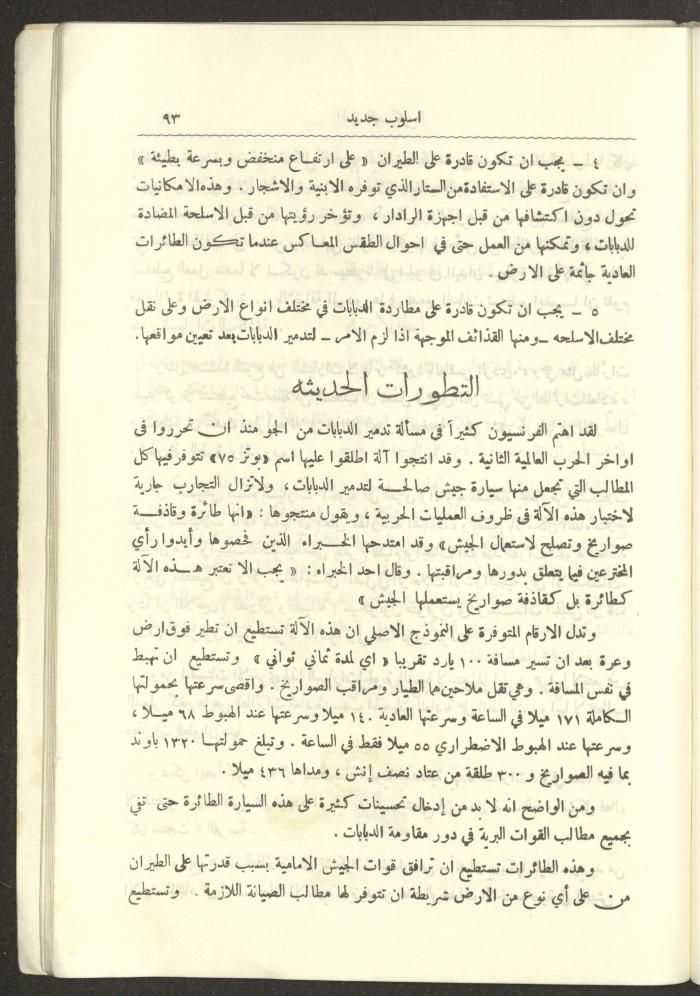 اسلوب جديد ٩٣
٤ ـ يجب ان تكون قادرة على الطيران « على ارتفـاع منخفض وبسرعة بطيئة »
وان تكون قادرة على الاستفادة من الستار الذي توفره الابنية والاشجار . وهذه الامكانيات
تحول دون اكتشافها من قبل اجهزة الرادار ، وتؤخر رؤيتها من قبل الاسلحة المضادة
للدبابات ، وتمكنها من العمل حتى في احوال الطقس المعـاكس عندما تكـون الطائرات
العادية جاثمة على الارض .
٥ ـ يجب ان تكون قادرة على مطاردة الدبابات في مختلف انواع الارض وعلى نقل
مختلف الاسلحه ـ ومنها القذائف الموجهة اذا لزم الامر ـ لتدمير الدبابات بعد تعيين مواقعها.
التطورات الحديثه
لقد اهتم الفرنسيون كثيراً في مسألة تدمير الدبابات من الجو منذ ان تحرروا في
اواخر الحرب العالمية الثانية . وقد انتجوا آلة اطلقوا عليها اسم «بوتز ٧٥» تتوفر فيها كل
المطالب التي تجعل منها سيارة جيش صالحـــة لتدمير الدبابات ، ولاتزال التجارب جارية
لاختبار هذه الآلة في ظروف العمليات الحربية ، ويقول منتجوها : «انها طائرة وقاذفــة
صواريخ وتصلح لاستعمال الجيش» وقد امتدحها الخـــبراء الذين فحصوها وأيدوا رأي
المخترعين فيما يتعلق بدورها ومراقبتها . وقال احد الخبراء : « يجب الا تعتبر هـــذه الآلة
كطائرة بل كقاذفة صواريخ يستعملها الجيش »
وتدل الارقام المتوفرة على النموذج الاصلي ان هذه الآلة تستطيع ان تطير فوق ارض
وعرة بعد ان تسير مسافة ١٠٠ يارد تقريبا « اي لمدة ثماني ثواني » وتستطيع ان تهبط
في نفس المسافة . وهي تقل ملاحين هما الطيار ومراقب الصواريخ . واقصى سرعتها بحمولتها
الكـاملة ١٧١ ميلا في الساعة وسرعتها العادية ١٤٠ ميلا وسرعتها عند الهبوط ٦٨ ميـلا ،
وسرعتها عند الهبوط الاضطراري ٥٥ ميلا فقط في الساعة . وتبلغ حمولتهـا ١٣٢٠ باوند
بما فيه الصواريخ و ٣٠٠ طلقة من عتاد نصف إنش ، ومداها ٤٣٦ ميلا .
ومن الواضح انه لا بد من إدخال تحسينات كثيرة على هذه السيارة الطائرة حتى تفي
بجميع مطالب القوات البرية في دور مقاومة الدبابات .
وهذه الطائرات تستطيع ان ترافق قوات الجيش الامامية بسبب قدرتها على الطيران
من على أي نوع من الارض شريطة ان تتوفر لها مطالب الصيانة اللازمة . وتستطيع